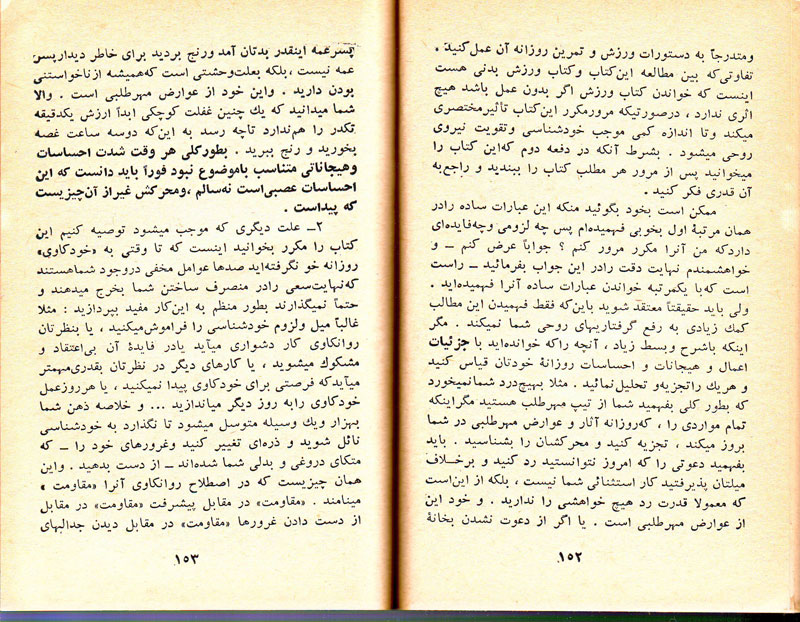 ومتدرجاً به دستورات ورزش و تمرین روزانه آن عمل کنید.
تفاوتی که بین مطالعه این کتاب وکتاب ورزش بدنی هست
اینست که خواندن کتاب ورزش اگر بدون عمل باشد هیچ
اثری ندارد، درصورتیکه مرورمکرر این کتاب تأثیرمختصری
میکند وتا اندازه کمی موجب خودشناسی وتقویت نیروی
روحی میشود. بشرط آنکه در دفعه دوم که این کتاب را
میخوانید پس از مرور هر مطلب کتاب را ببندید و راجع به
آن قدری فکر کنید.
ممکن است بخود بگوئید منکه این عبارات ساده رادر
همان مرتبهٔ اول بخوبی فهمیده‌ام پس چه لزومی وچه فایده‌ای
دارد که من آنرا مکرر مرور کنم؟ جواباً عرض کنم ــ و
خواهشمندم نهایت دقت رادر این جواب بفرمائید ــ راست
است که با یکمرتبه خواندن عبارات ساده آنرا فهمیده‌اید.
ولی باید حقیقتاً معتقد شوید باین که فقط فهمیدن این مطالب
کمك زیادی به رفع گرفتاریهای روحی شما نمیکند. مگر
اینکه باشرح وبسط زیاد، آنچه راکه خوانده‌اید با جزئیات
اعمال و هیجانات و احساسات روزانهٔ خودتان قیاس کنید
و هریك راتجزیه و تحلیل نمائید. مثلا بهیچ درد شما نمیخورد
که بطور کلی بفهمید شما از تیپ مهرطلب هستید مگراینکه
تمام مواردی را، که روزانه آثار و عوارض مهرطلبی در شما
بروز میکند، تجزیه کنید و محرکشان را بشناسید. باید
بفهمید دعوتی را که امروز نتوانستید رد کنید و برخلاف
میلتان پذیرفتید کار استثنائی شما نیست، بلکه از این است
که معمولا قدرت رد هیچ خواهشی را ندارید. و خود این
از عوارض مهرطلبی است. یا اگر از دعوت نشدن بخانهٔ
۱۵۲
پسرعمه اینقدر بدتان آمد ورنج بردید برای خاطر دیدار پسر
عمه نیست، بلکه بعلت وحشتی است که همیشه از ناخواستنی
بودن دارید. واین خود از عوارض مهرطلبی است. والا
شما میدانید که یك چنین غفلت کوچکی ابداً ارزش یکدقیقه
تکدر را هم ندارد تاچه رسد به این که دوسه ساعت غصه
بخورید و رنج ببرید. بطور کلی هر وقت شدت احساسات
وهیجاناتی متناسب باموضوع نبود فوراً باید دانست که این
احساسات عصبی است نه سالم، ومحرکش غیر از آن چیزیست
که پیداست.
۲ــ علت دیگری که موجب میشود توصیه کنیم این
کتاب را مکرر بخوانید اینست که تا وقتی به «خودکاوی»
روزانه خو نگرفته‌اید صدها عوامل مخفی دروجود شما هستند
که نهایت سعی رادر منصرف ساختن شما بخرج میدهند و
حتماً نمیگذارند بطور منظم به این کار مفید بپردازید: مثلا
غالباً میل ولزوم خودشناسی را فراموش میکنید، یا بنظرتان
روانکاوی کار دشواری میآید یادر فایدهٔ آن بی‌اعتقاد و
مشکوك میشوید، یا کارهای دیگر در نظرتان بقدری مهمتر
میآید که فرصتی برای خودکاوی پیدا نمیکنید، یا هرروزعمل
خودکاوی رابه روز دیگر میاندازید ... و خلاصه ذهن شما
بهزار ویك وسیله متوسل میشود تا نگذارد به خودشناسی
نائل شوید و ذره‌ای تغییر کنید وغرورهای خود را ــ که
متکای دروغی و بدلی شما شده‌اند ــ از دست بدهید. واین
همان چیزیست که در اصطلاح روانکاوی آنرا «مقاومت»
مینامند. «مقاومت» در مقابل پیشرفت «مقاومت» در مقابل
از دست دادن غرورها «مقاومت» در مقابل دیدن جدالهای
۱۵۳